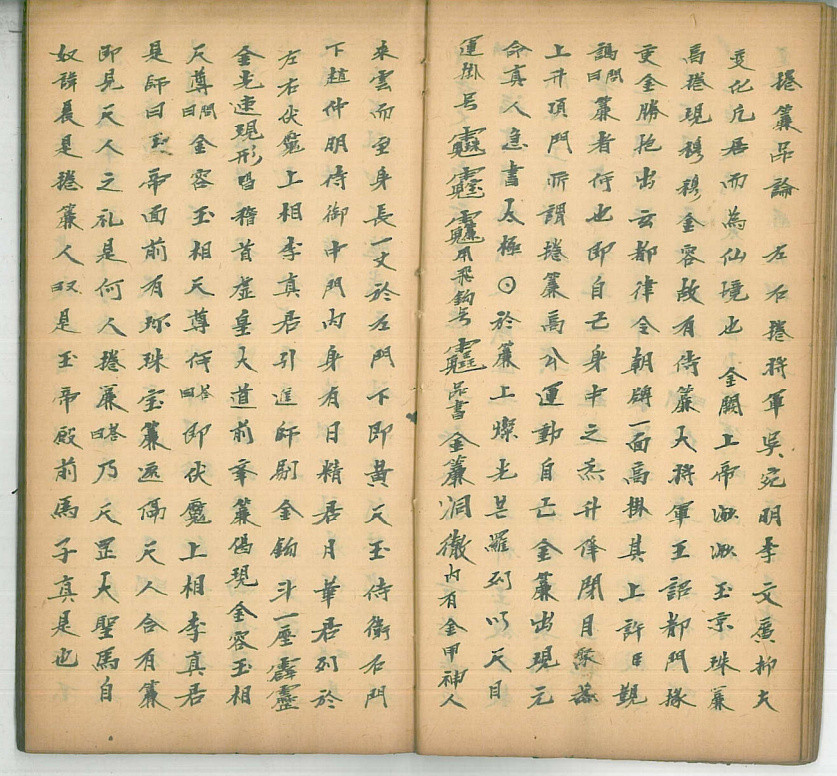 捲簾品論　左右捲將軍吳宛明李文廣抑夫
变化凡居而為仙境也　金闕上帝漵漵玉京珠簾
高捲現穆穆金容故有侍簾大将軍王詔都門掾
吏金勝抱出玄都律令朝牌一面高掛其上許曰覲
謁問曰簾者何也即自己身中之炁升降閉目聚
上升頂門所謂捲簾高公運動自亡金簾出現元
命真人進書太極於簾上燦光芒羅列以天目
運掛号用飛鈎号品書金簾洞徹内有金甲神人
來雲而至身長一丈於左門下即黄天玉侍衛右門
下趙仲明侍御中門内身有日精居月華居列於
左右伏魔上相李真君引進師剔金鈎斗一座霹靂
金光速現形唱稽首虚皇大道前辜簾偈現金容玉相
天尊問曰金容玉相天尊何答曰即伏魔上相李真君
是師曰玉帝面前有珎珠宝簾遮偏天人合有簾
即見天人之礼是何人捲簾答曰乃天罡大聖馬自
奴詳長是捲簾人奴是玉帝殿前馬子真是也